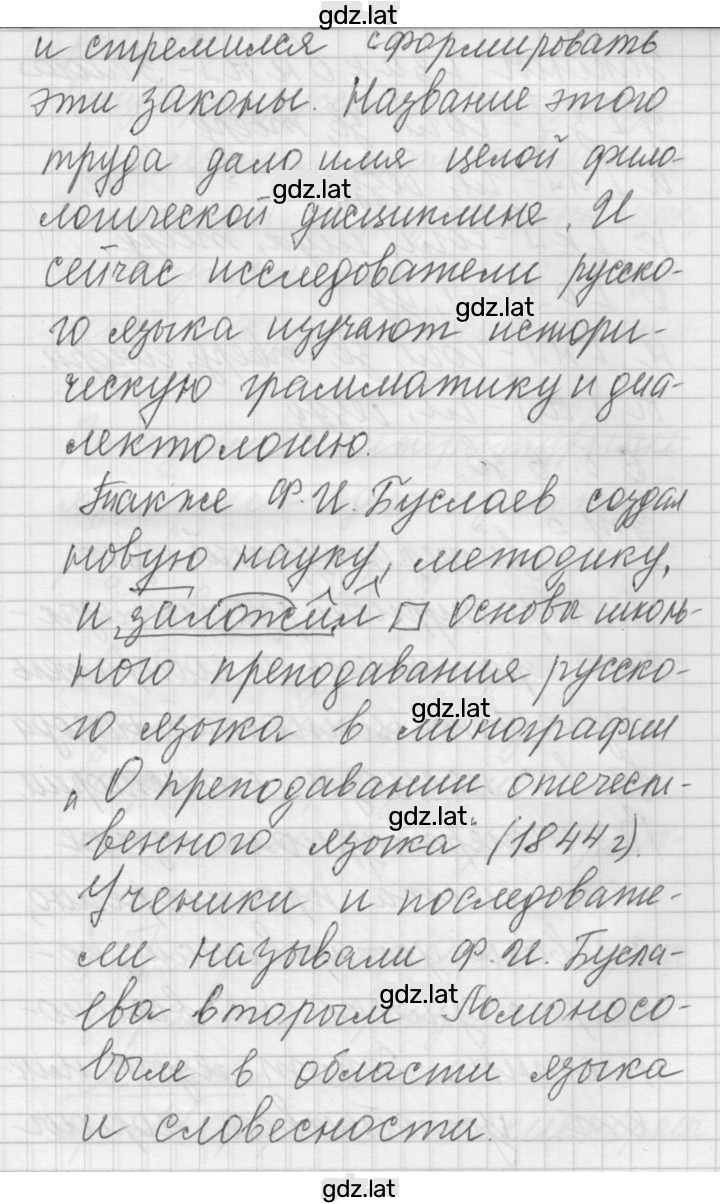 gdz.lat
и стремился сформировать
эти законы. Название этого
труда дало имя целой фило-
gdz.lat
логической дисциплине. И
сейчас исследователи русско-
gdz.lat
го языка изучают истори-
ческую грамматику и диа-
лектологию.
Также Ф.И. Буслаев создал
новую науку, методику,
и заложил основы школь-
ного преподавания русско-
gdz.lat
го языка в монографии
„О преподавании отечест-
gdz.lat
венного языка“ (1844 г).
Ученики и последовате-
ли называли Ф.И. Бусла-
gdz.lat
ева вторым Ломоносо-
вым в области языка
и словесности.
gdz.lat